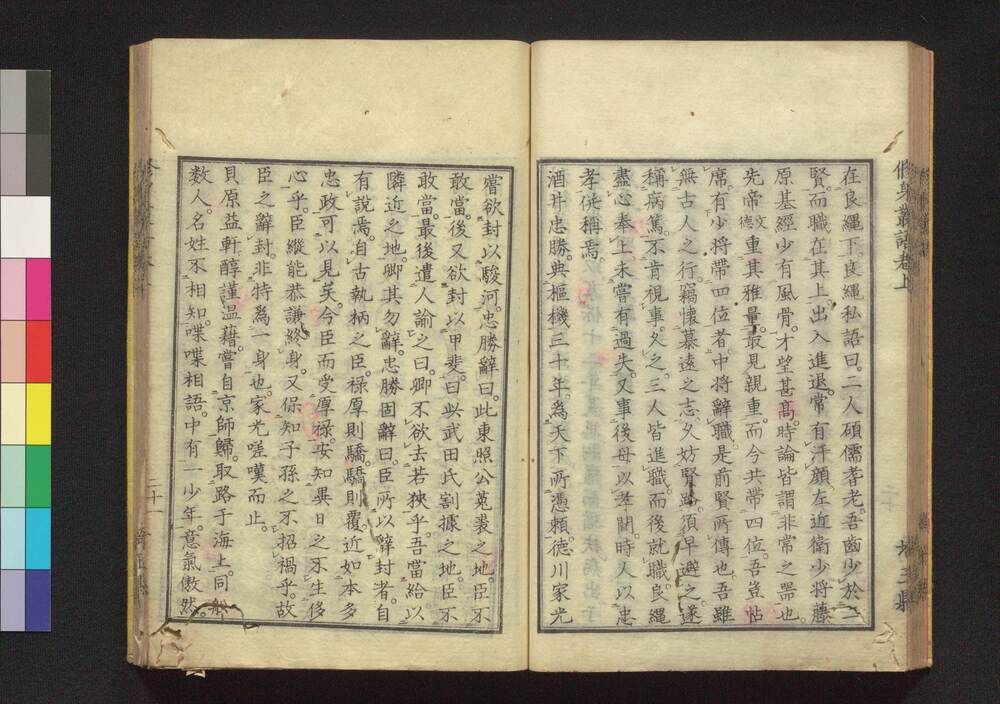 在良繩下。良繩私語曰。二人碩儒耆老。吾齒少於二
賢。而職在其上。出入進退。常有汗顏。左近衛少將藤
原基經少有風骨。才望甚高。時論皆謂非常之器也。
先帝文德重其雅量。最見親重。而今共帶四位。吾豈帖
席。有少將帶四位者。中將辭職。是前賢所傳也。吾雖
無古人之行。竊懷慕遠之志。久妨賢路。須早避之。遂
稱病篤。不肯視事。久之。三人皆進職。而後就職。良繩
盡心奉上。未嘗有過失。又事後母以孝聞。時人以忠
孝倂稱焉。
酒井忠勝。典樞機三十年。為天下所憑賴。德川家光
嘗欲封以駿河。忠勝辭曰。此東照公菟裘之地。臣不
敢當。後又欲封以甲斐。曰此武田氏割據之地。臣不
敢當。最後遣人諭之曰。卿不欲去若狹乎。吾當給以
隣近之地。卿其勿辭。忠勝固辭曰。臣所以辭封者。自
有說焉。自古執柄之臣。祿厚則驕。驕則覆。近如本多
忠政可以見矣。今臣而受厚祿。安知異日之不生侈
心乎。臣縱能恭謙終身。又保知子孫之不招禍乎。故
臣之辭封。非特為一身也。家光嗟嘆而止。
貝原益軒。醇謹溫藉。嘗自京師歸。取路于海上。同船
数人。名姓不相知。喋喋相語。中有一少年。意氣傲然。
修身叢語卷上
二十一